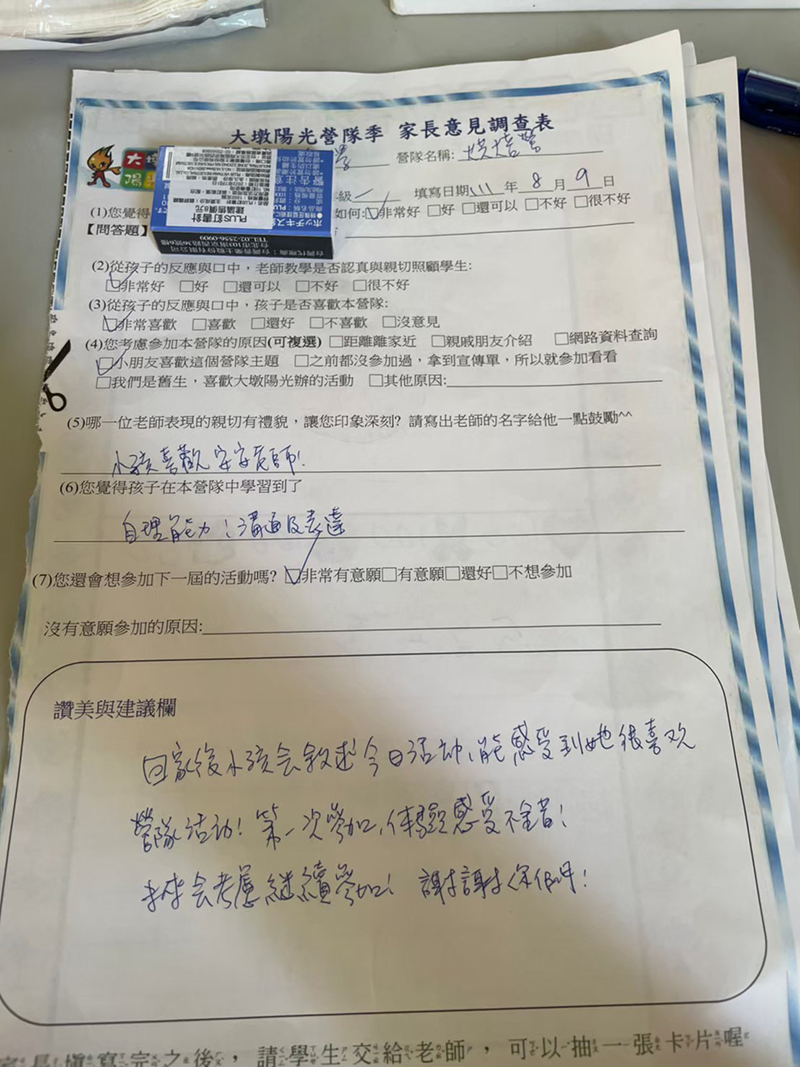 大墩陽光營隊季 家長意見調查表
營隊名稱: 烘焙營
級一 填寫日期111年8月9日
(1)您覺得 如何:☑非常好 □好 □還可以 □不好 □很不好
【問答題】
(2)從孩子的反應與口中，老師教學是否認真與親切照顧學生:
☑非常好 □好 □還可以 □不好 □很不好
(3)從孩子的反應與口中，孩子是否喜歡本營隊:
☑非常喜歡 □喜歡 □還好 □不喜歡 □沒意見
(4)您考慮參加本營隊的原因(可複選) □距離離家近 □親戚朋友介紹 □網路資料查詢
☑小朋友喜歡這個營隊主題 □之前都沒參加過，拿到宣傳單，所以就參加看看
□我們是舊生，喜歡大墩陽光辦的活動 □其他原因:
(5)哪一位老師表現的親切有禮貌，讓您印象深刻? 請寫出老師的名字給他一點鼓勵^^
小孩喜歡安安老師!
(6)您覺得孩子在本營隊中學習到了
自理能力；溝通及表達
(7)您還會想參加下一屆的活動嗎? ☑非常有意願□有意願□還好□不想參加
沒有意願參加的原因:
讚美與建議欄
回家後小孩会敘述今日活动，能感受到她很喜欢
營隊活动! 第一次參加，体驗感受不錯!
未來会考慮継續參加! 謝謝你們!
家長填寫完之後，請學生交給老師，可以抽一張卡片喔
ホッチキス
警告注意
PLUS釘書針
建議售價6元
台北市103南京西路
TEL.02-2556-0909